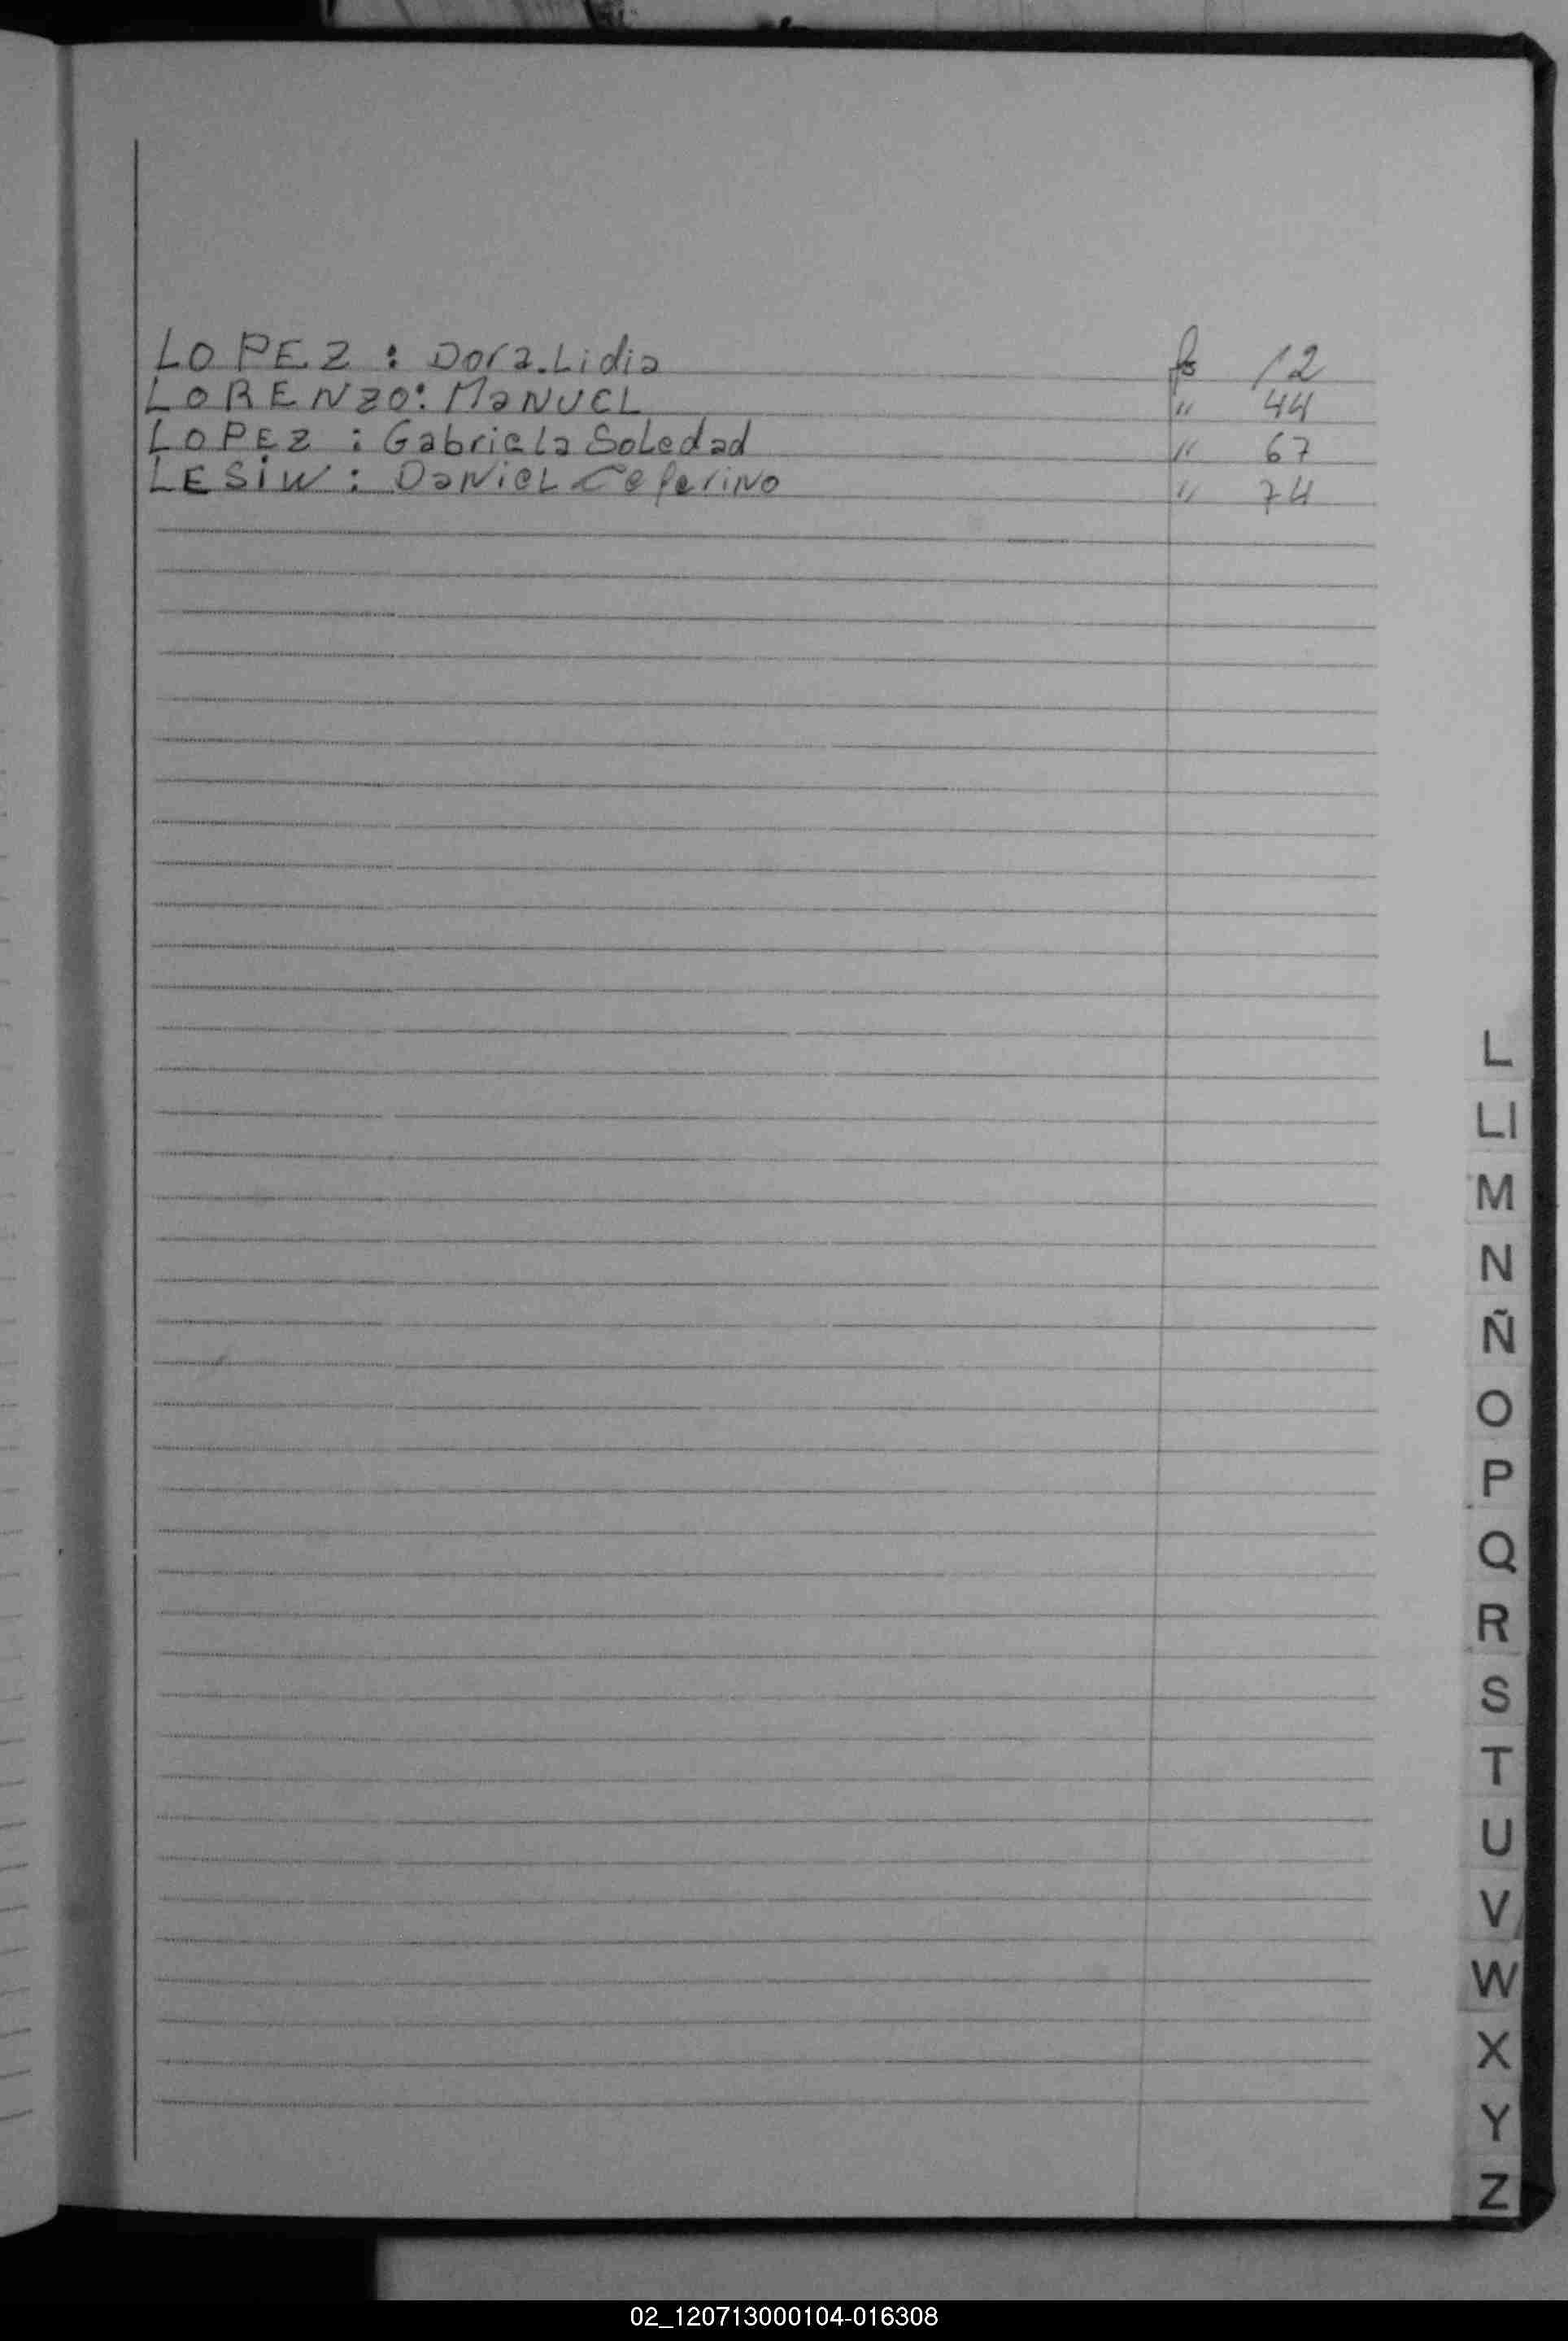 LOPEZ : Dora. Lidia fs 12
LORENZO: MANUEL " 44
LOPEZ : Gabriela Soledad " 67
LESiW : DANiEL CeferiNo " 74
L
Ll
M
N
Ñ
O
P
Q
R
S
T
U
V
W
X
Y
Z
02_120713000104-016308